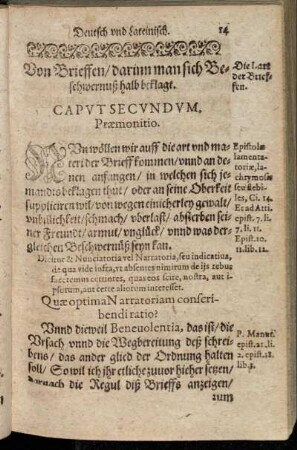 Deutsch vnd Lateinisch. 14
Von Brieffen/ darinn man sich Be-
schwernuß halb beklagt.
Die I. art
der Brief-
fen.
CAPVT SECVNDVM,
Præmonitio.
NVn wöllen wir auff die art vnd ma-
teri der Brieff kommen/ vnnd an de-
nen anfangen/ in welchen sich je-
mandts beklagen thut/ oder an seine Oberkeit
supplicieren wil/ von wegen einicherley gewalt/
vnbillichkeit/ schmach/ vberlast/ absterben sei-
ner Freundt/ armut/ vnglück/ vnnd was der-
gleichen Beschwernuß seyn kan.
Epistolæ
lamenta-
toriæ, la-
chrymosæ
seu flebi-
les, Ci. 14.
Et ad Atti.
epist. 7. li.
7. li. 11.
Epist. 10.
11. lib. 12.
Dicitur & Nunciatoria vel Narratoria, seu indicatiua,
de qua vide infra, vt absentes nimirum de ijs rebus
faciemus certiores, quas eos scire, nostra, aut i-
psorum, aut certe aliorum interesset.
Quæ optima Narratoriam conscri-
bendi ratio?
Vnnd dieweil Beneuolentia, das ist/ die
Vrsach vnnd die Wegbereitung deß schrei-
bens/ das ander glied der Ordnung halten
soll/ So wil ich ihr etliche zuuor hieher setzen/
darnach die Regul diß Brieffs anzeigen/
zum
P. Manut.
epist. 21. li.
2. epist. 18.
lib. 1.